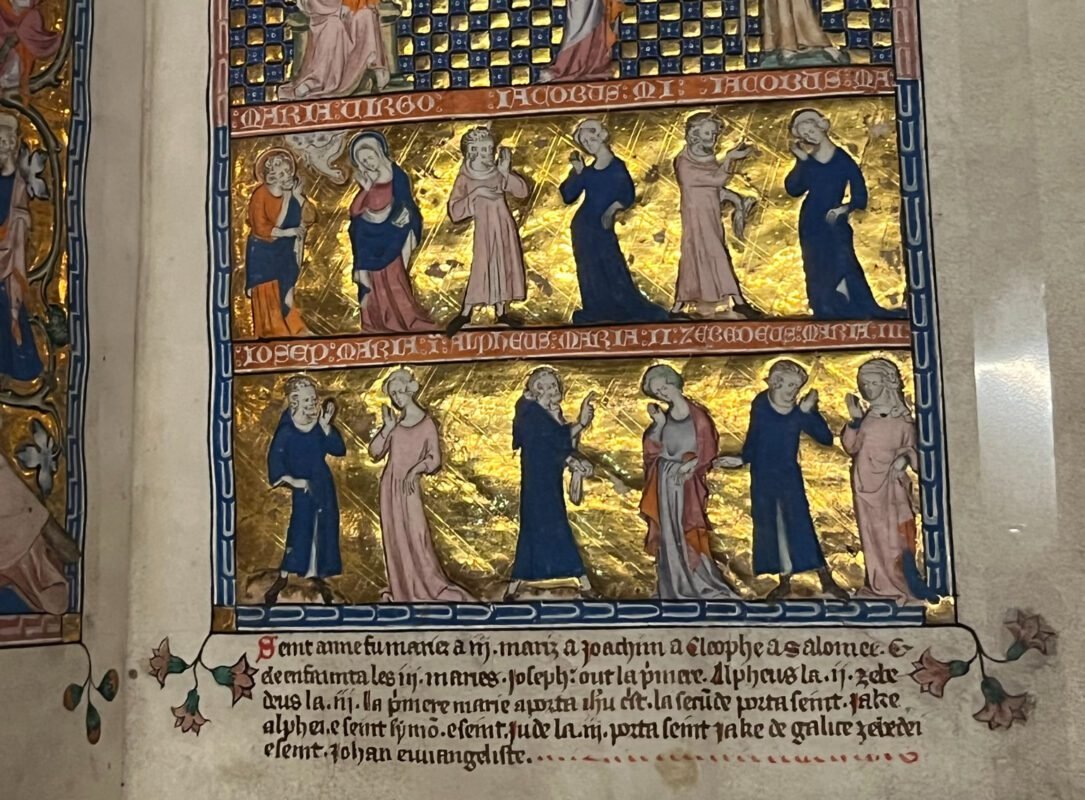 MARIA: VIRGO: IACOBUS: MI: IACOBUS: MA
:IOSEP: MARIA: I: ALPHEUS: MARIA: II: ZEBEDEUS: MARIA: III
Seint anne fu mariez a iij. mariz a Joachim a Cleophe a Salomee. E
de enfaunta les iij. maries. Joseph: out la p'miere. Alpheus la. ij. zebe
deus la. iij. la p'miere marie a porta ihu c'st. la secu'de porta seint. Jake
alphei. e seint symo'. e seint. Jude la. iij. porta seint Jake de galice zebedei
e seint. Johan ewangeliste.